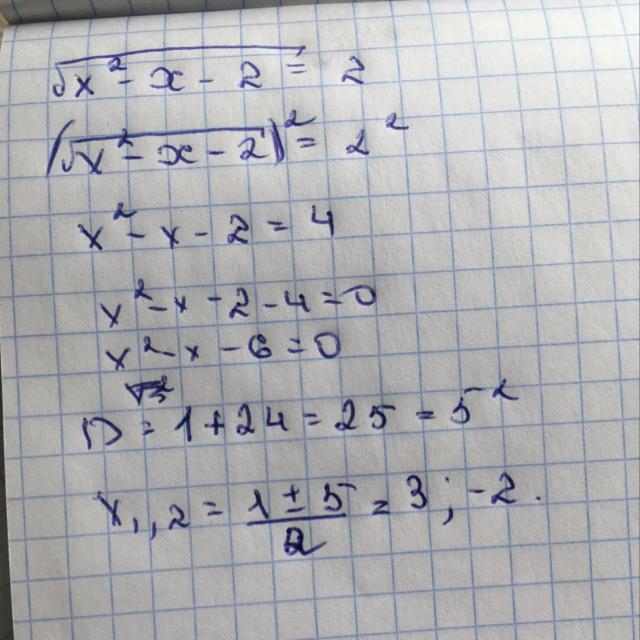 √x² - x - 2 = 2
(√x² - x - 2)² = 2²
x² - x - 2 = 4
x² - x - 2 - 4 = 0
x² - x - 6 = 0
D = 1 + 24 = 25 = 5²
x₁,₂ = (1 ± 5)/2 = 3; -2.